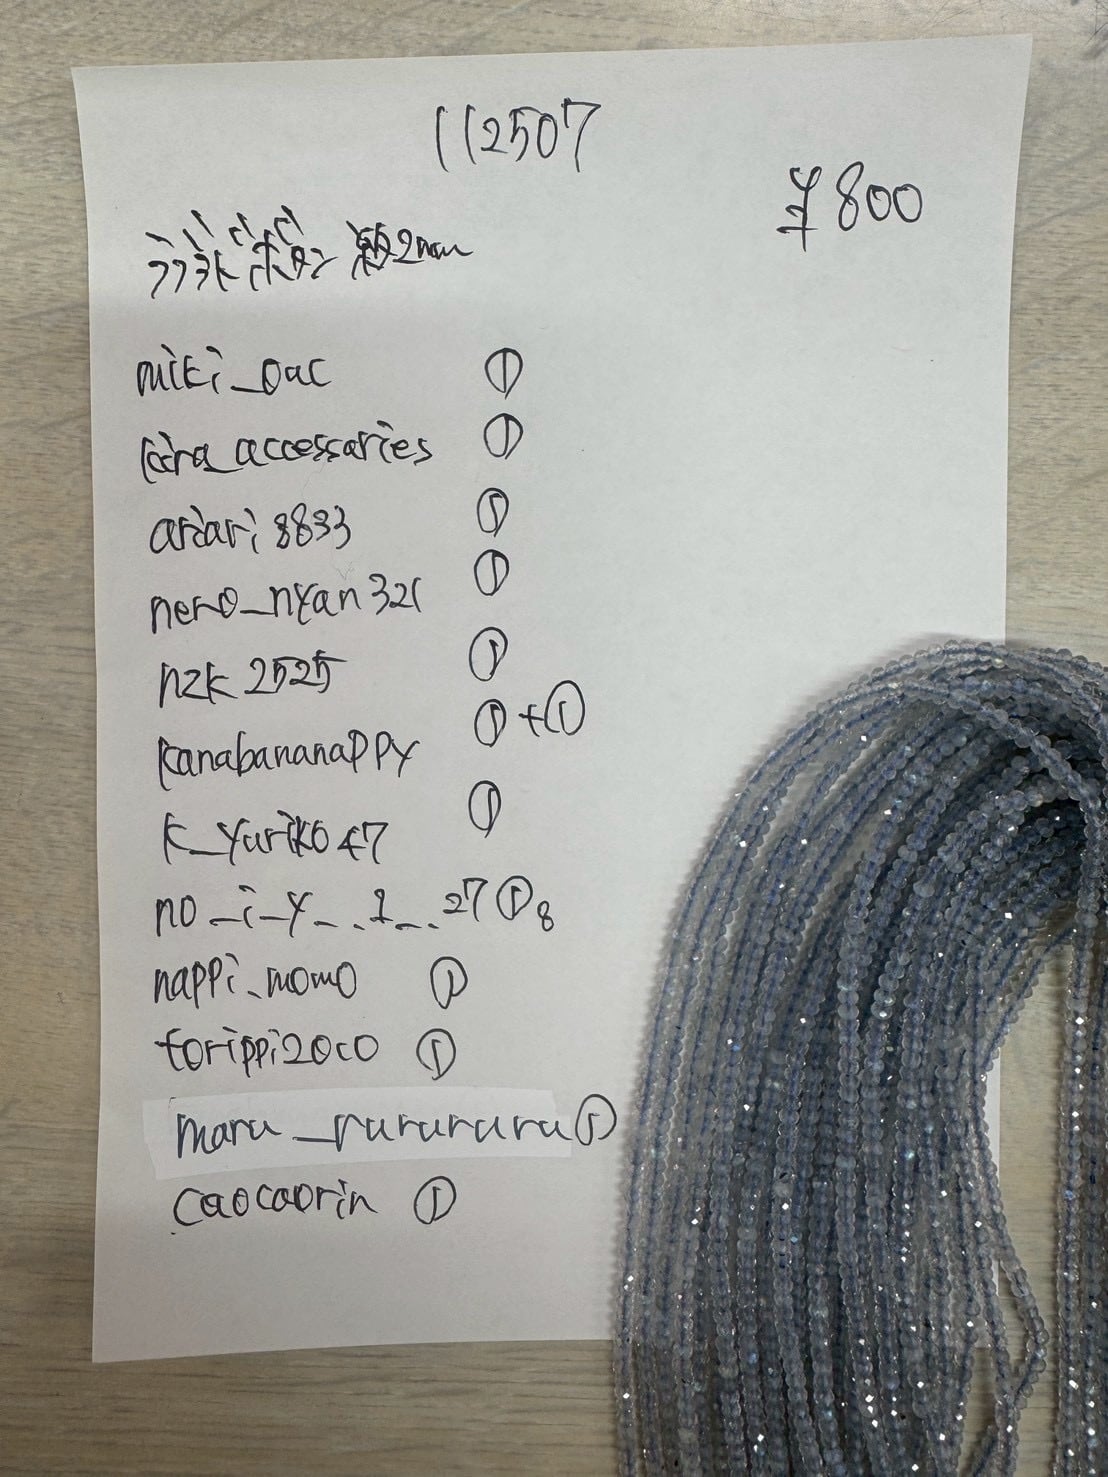 112507
¥800
ラブラドボタン 約2mm
miki_oac ①
kira_accessaries ①
ariari8833 ①
nero_nyan321 ①
nzk2525 ①
kanabananappy ①+①
k_yuriko47 ①
no_i_y_._1_..27 ① 8
nappi_momo ①
torippi2oco ①
maru_rurururu ①
caocaorin ①